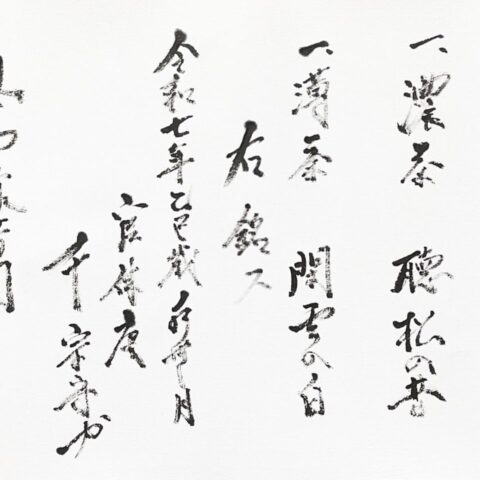 一、濃茶 聴松の昔
一、薄茶 閑雲の白
右銘ス
令和七年乙巳歳 月
官休庵
千宗守